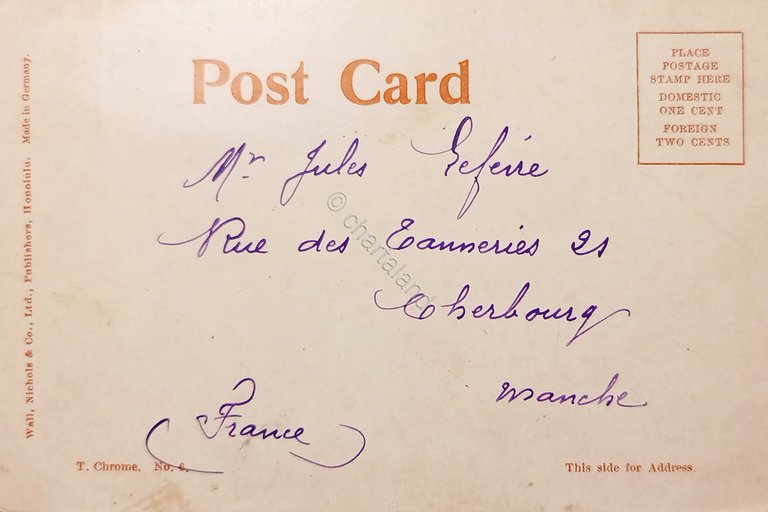 Post Card
PLACE
POSTAGE
STAMP HERE
DOMESTIC
ONE CENT
FOREIGN
TWO CENTS
Mr Jules Lefèvre
Rue des Tanneries 21
Cherbourg
Manche
(France)
Wall, Nichols & Co., Ltd., Publishers, Honolulu. Made in Germany.
T. Chrome. No. 6.
This side for Address.
© chartaland